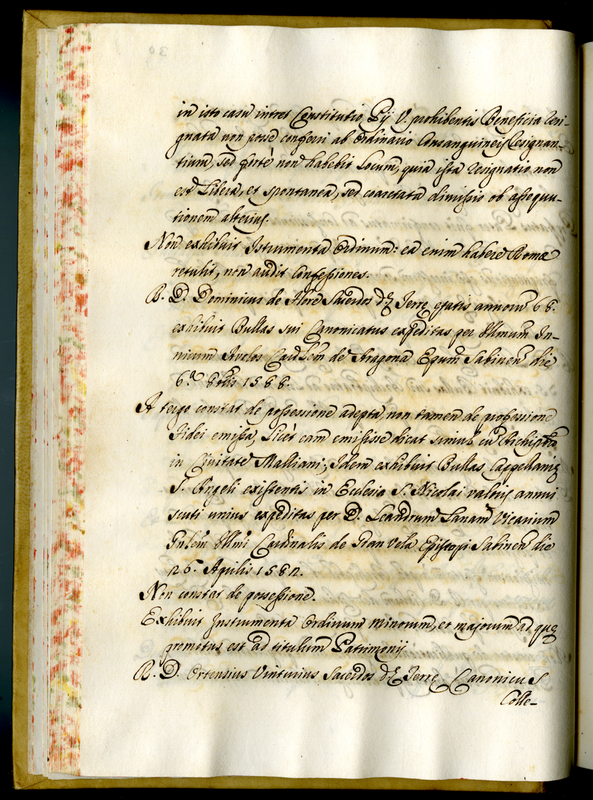 in isto casu intret Constitutio Pij V. prohibentis Beneficia resi-
gnata non posse conferri ab Ordinario Consanguineis Resignan-
tium, sed forte non habebit locum, quia ista resignatio non
est libera, et spontanea, sed coarctata dimissio ob assequu-
tionem alterius.
Non exhibuit Istrumenta Ordinum: ea enim habere Romæ
retulit, non audit Confessiones.
R. D. Dominicus de Sacerdos dę Terrę ętatis annorũ 68.
exhibuit Bullas sui Canonicatus expeditas per Illmum In-
nicum Cardlem de Aragona Epum Sabinen die
1588.
A tergo constat de possessione adepta, non tamen de professione
Fidei emissa, licet eam emisisse dicat simul cũ Archipbro
in Civitate Malliani; Idem exhibuit Bullas Cappellanię
S. Angeli existentis in Ecclesia S. Nicolai valoris annui
scuti unius expeditas per D. Leandrum Vicarium
Illmi Cardinalis de Gran Vela Episcopi Sabinen die
26. Aprilis 1582.
Non constat de possessione.
Exhibuit Instrumenta Ordinum minorum, et majorum ad quę
promotus est ad titulum Patrimonij.
R. D. Ortensius Sacerdos dę Terrę Canonicus
Colle-